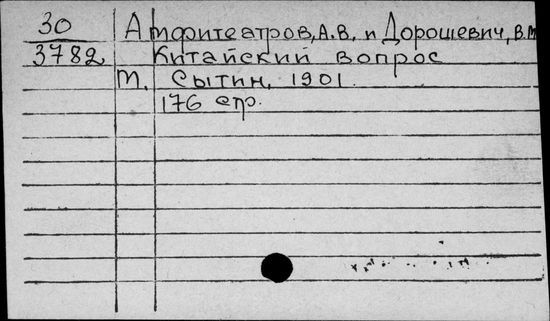 30 Амфитеатров, А.В. и Дорошевич, В.М
3782 Китайский вопрос
т. Сытин, 1901.
176 стр.